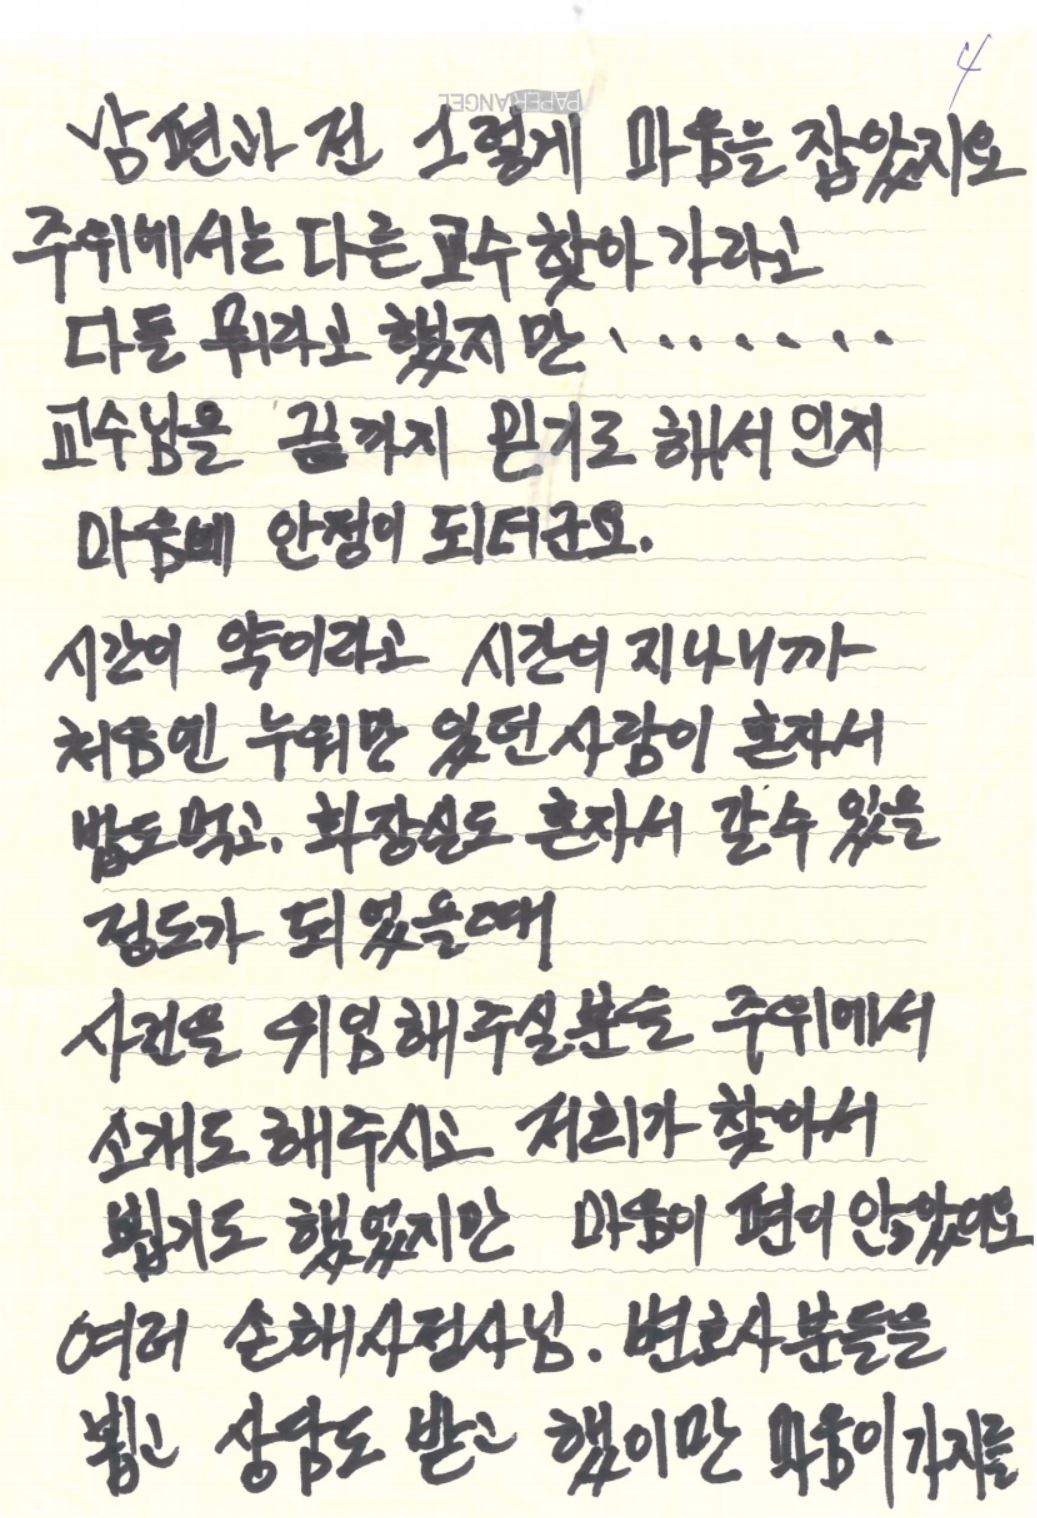 4
PAPERANGEL
남편과 전 그렇게 마음을 잡았지요
주위에서는 다른 교수 찾아 가라고
다들 뭐라고 했지만 . . . . . . .
교수님을 끝까지 믿기로 해서 인지
마음에 안정이 되더군요.
시간이 약이라고 시간이 지나니까
처음엔 누워만 있던 사람이 혼자서
밥도 먹고, 화장실도 혼자서 갈수 있을
정도가 되었을때
사건을 위임해 주실분을 주위에서
소개도 해주시고 저희가 찾아서
뵙기도 했었지만 마음이 편이 않았어요
여러 손해사정사님. 변호사분들을
뵙고 상담도 받고 했이만 마음이 가지를